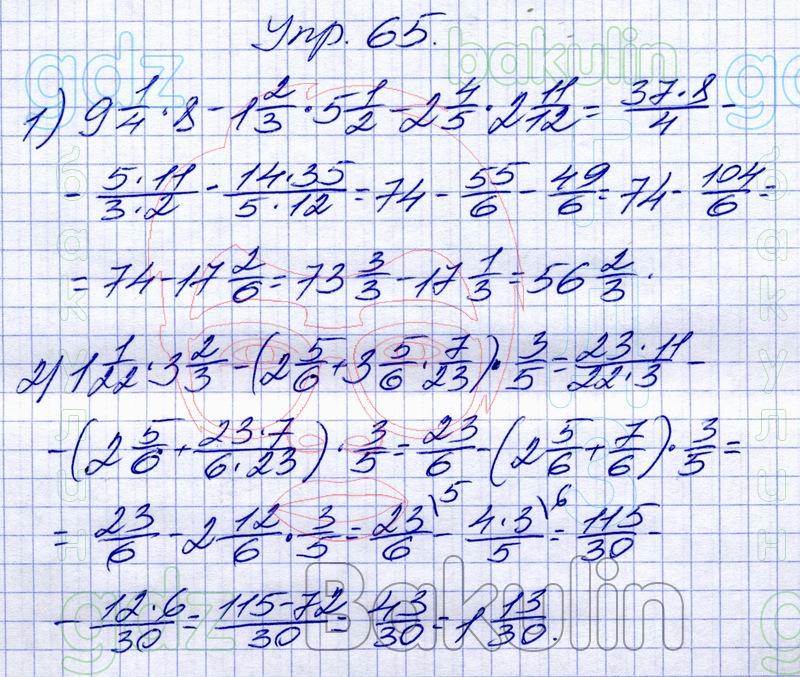 Упр. 65.
1) 9 1/4 · 8 - 1 2/3 · 5 1/2 - 2 4/5 · 2 11/12 = 37·8/4 -
- 5·11/3·2 - 14·35/5·12 = 74 - 55/6 - 49/6 = 74 - 104/6 =
= 74 - 17 2/6 = 73 3/3 - 17 1/3 = 56 2/3.
2) 1 1/22 · 3 2/3 - (2 5/6 + 3 5/6 · 7/23) · 3/5 = 23·11/22·3 -
- (2 5/6 + 23·7/6·23) · 3/5 = 23/6 - (2 5/6 + 7/6) · 3/5 =
= 23/6 - 2 12/6 · 3/5 = 23/6 \5 - 4·3/5 \6 = 115/30 -
- 12·6/30 = 115-72/30 = 43/30 = 1 13/30.
gdz
bakulin
gdz
бакулин
бакулин
gdz
Bakulin